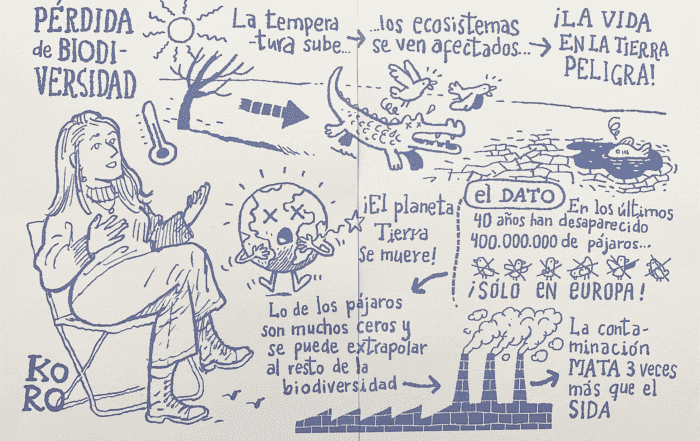 PÉRDIDA
de BIODI-
VERSIDAD
La tempera
-tura sube...
...los ecosistemas
se ven afectados...
¡LA VIDA
EN LA TIERRA
PELIGRA!
¡El planeta
Tierra
se muere!
el DATO
En los últimos
40 años han desaparecido
400.000.000 de pájaros...
¡SÓLO EN EUROPA!
Lo de los pájaros
son muchos ceros y
se puede extrapolar
al resto de la
biodiversidad
La conta-
minación
MATA 3 veces
más que el
SIDA
KO
RO